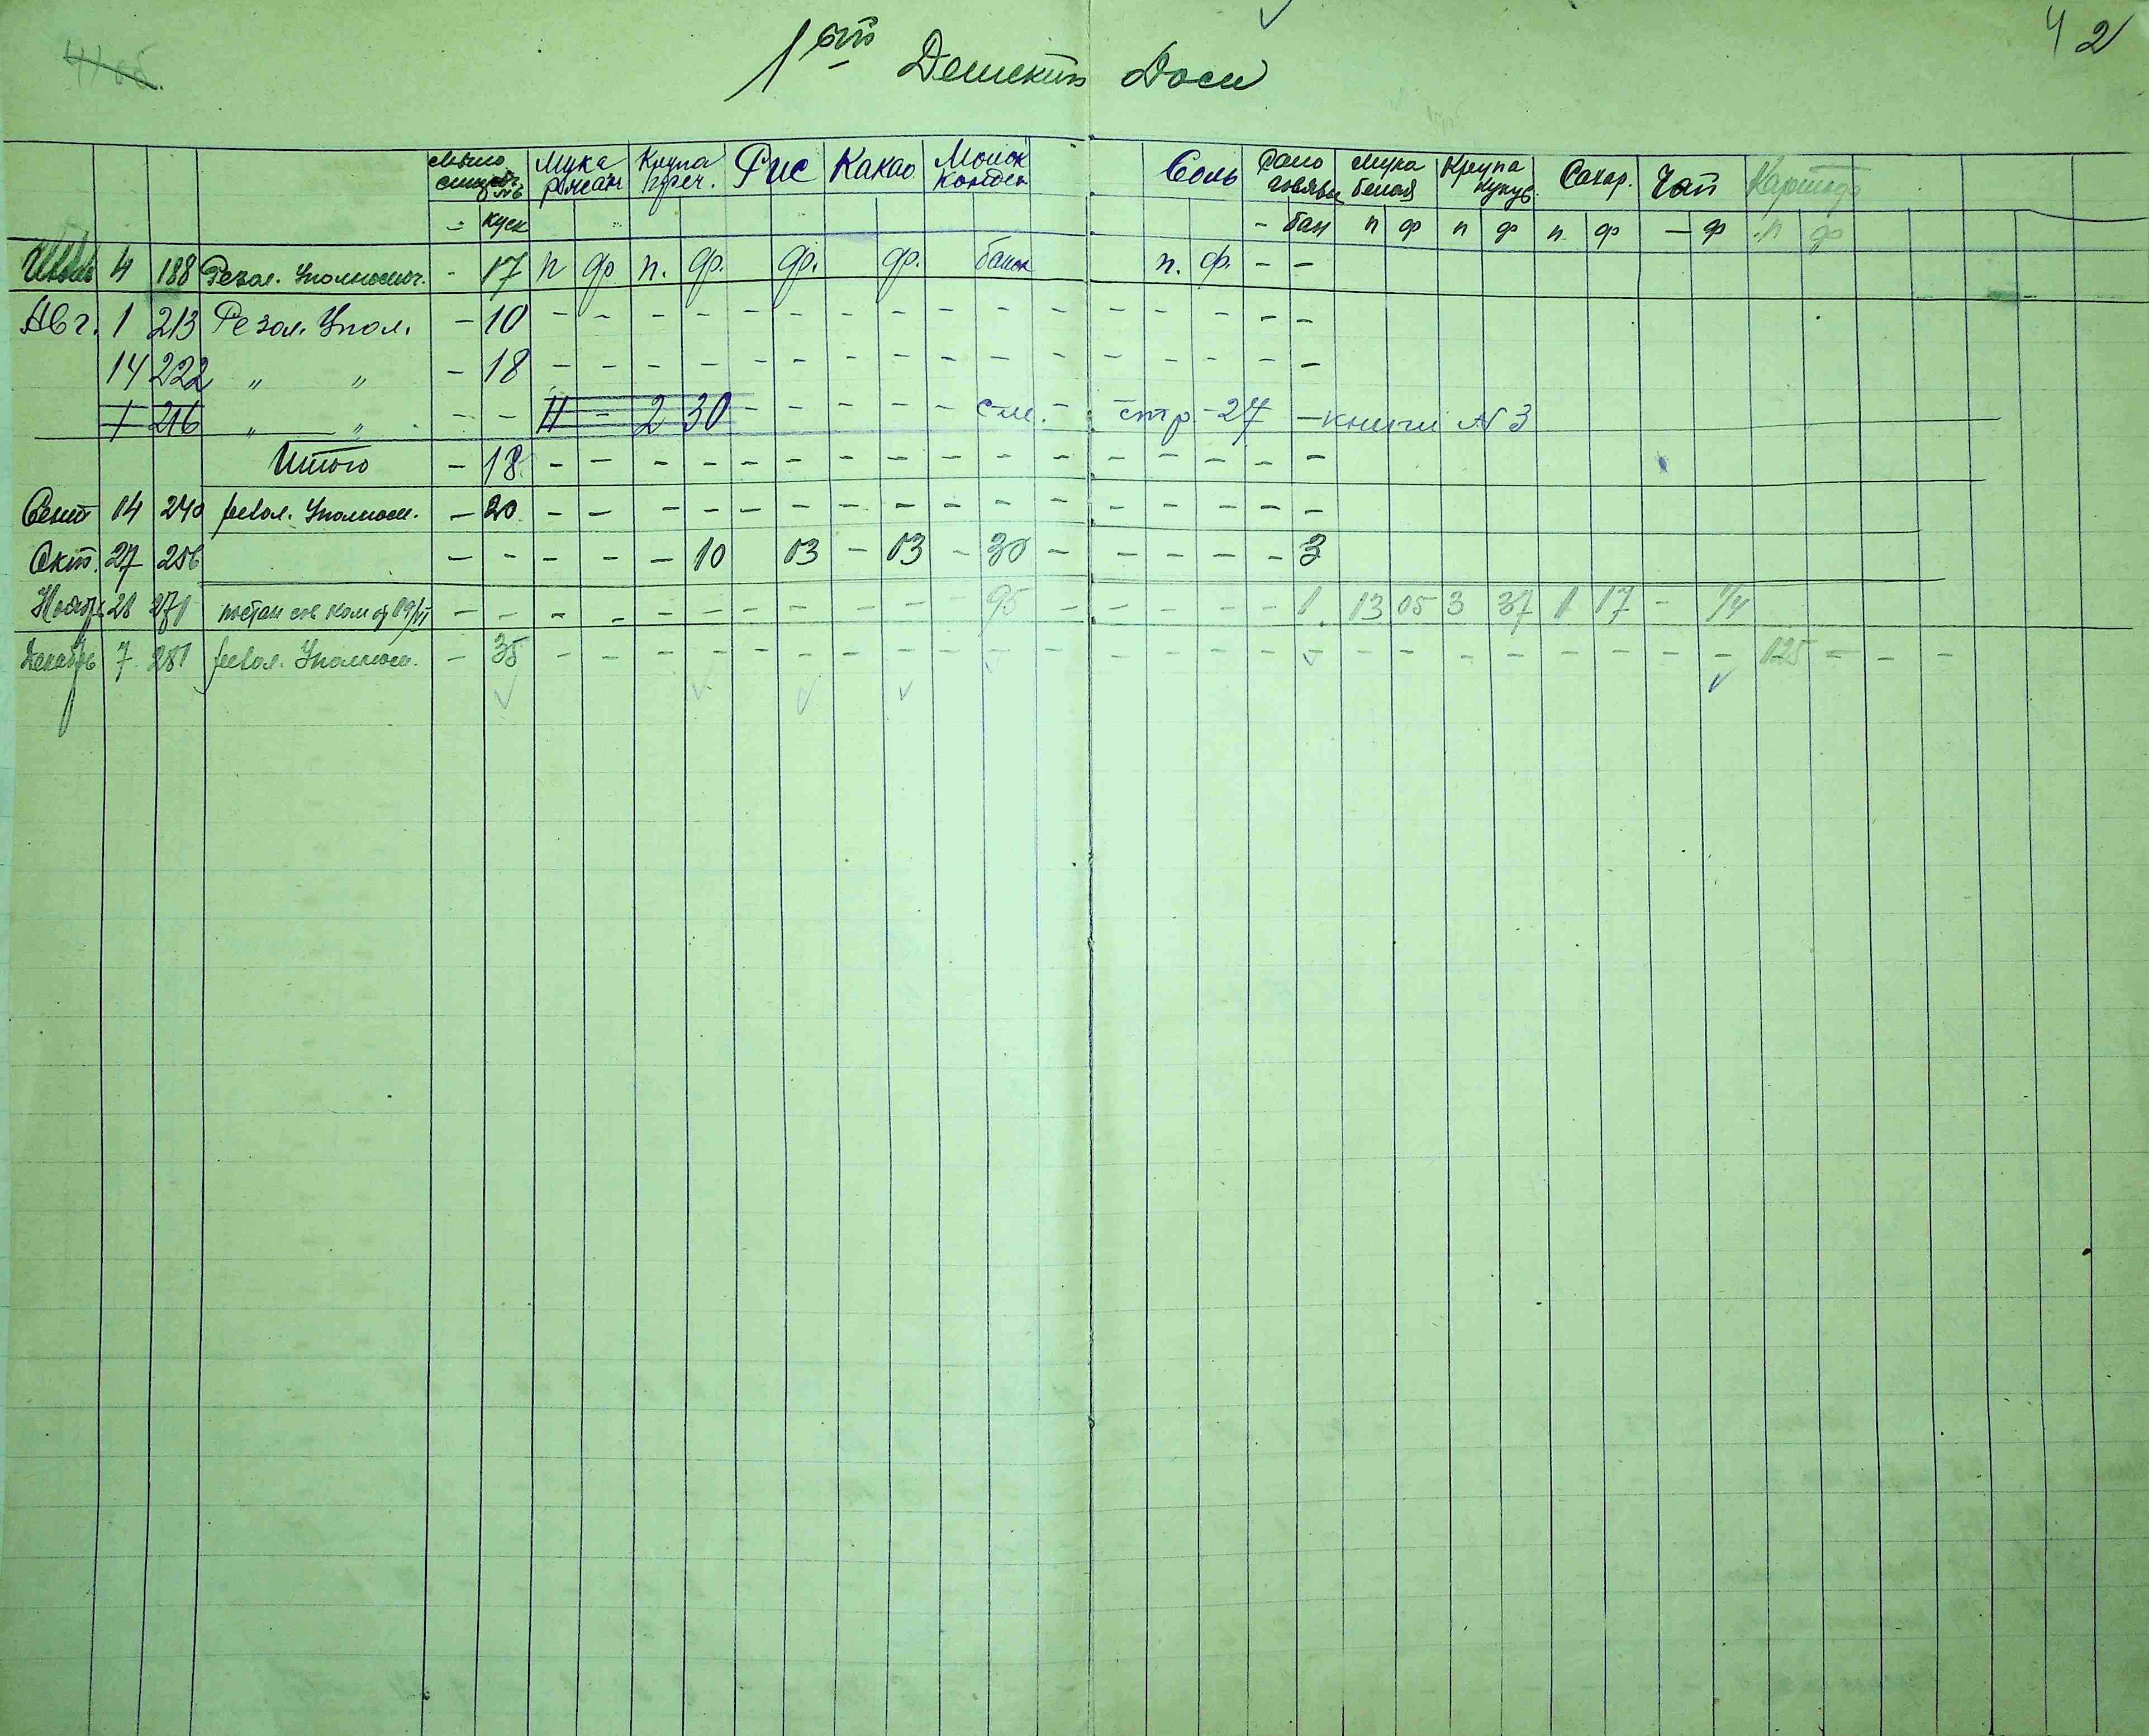 42
1ый Детский Дом
Мыло Мука ржан Крупа греч. Рис Какао Молок Конден Соль Сало говяжье Мука белая Крупа кукур. Сахар. Чай Картоф
- куск - бан п ф п ф п ф - ф п ф
Июль 4 188 Резол. Уполномоч. - 17 п ф п. ф. ф. ф. банок п. ф. - -
Авг. 1 213 Резол. Упол. - 10 - - - - - - - - - - - - - - - -
14 222 " " - 18 - - - - - - - - - - - - - - - -
1 216 " " - - 11 - 2 30 - - - - - см. - стр - 27 - книги N 3
Итого - 18 - - - - - - - - - - - - - - - -
Сент 14 240 резол. Уполном. - 20 - - - - - - - - - - - - - - - -
Окт. 27 256 - - - - - 10 03 - 03 - 30 - - - - - 3
Ноябр 28 271 постан - - - - - - - - - - - 95 - - - - - 1 13 05 3 37 1 17 - 1/4
Декабрь 7 281 резол. Уполном. - 35 - - - - - - - - - - - - - - - - - - - - - - - - 125 - - -